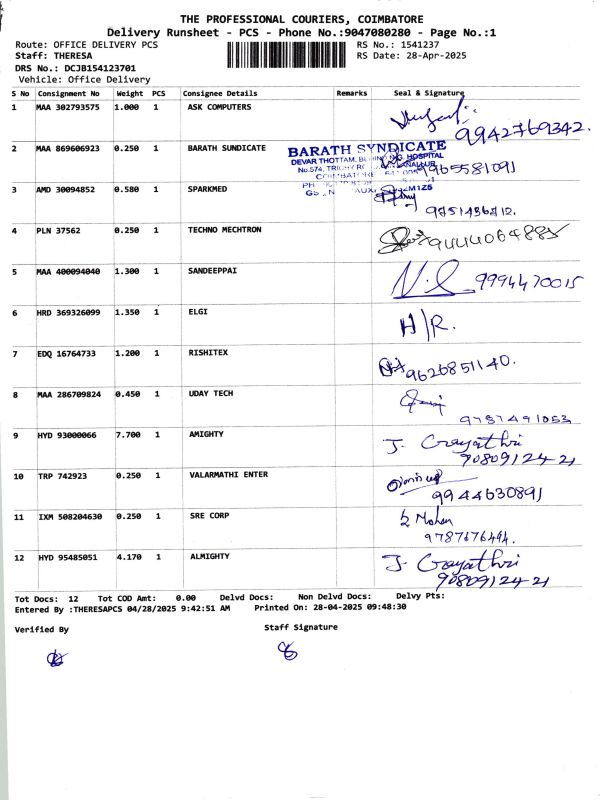 THE PROFESSIONAL COURIERS, COIMBATORE
Delivery Runsheet - PCS - Phone No.:9047080280 - Page No.:1
Route: OFFICE DELIVERY PCS RS No.: 1541237
Staff: THERESA RS Date: 28-Apr-2025
DRS No.: DCJB154123701
Vehicle: Office Delivery
S No Consignment No Weight PCS Consignee Details Remarks Seal & Signature
1 MAA 302793575 1.000 1 ASK COMPUTERS 9942769342.
2 MAA 869606923 0.250 1 BARATH SUNDICATE
BARATH SYNDICATE
DEVAR THOTTAM, HOSPITAL
No.574,
9965581091
3 AMD 30094852 0.580 1 SPARKMED
9751436712.
4 PLN 37562 0.250 1 TECHNO MECHTRON 9444064885
5 MAA 400094040 1.300 1 SANDEEPPAI 9994470015
6 HRD 369326099 1.350 1 ELGI H/R.
7 EDQ 16764733 1.200 1 RISHITEX 9626851140.
8 MAA 286709824 0.450 1 UDAY TECH
9787491053
9 HYD 93000066 7.700 1 AMIGHTY J. Gayathri
9080912421
10 TRP 742923 0.250 1 VALARMATHI ENTER
9944630891
11 IXM 508204630 0.250 1 SRE CORP Mohan
9787676494.
12 HYD 95485051 4.170 1 ALMIGHTY J. Gayathri
9080912421
Tot Docs: 12 Tot COD Amt: 0.00 Delvd Docs: Non Delvd Docs: Delvy Pts:
Entered By :THERESAPCS 04/28/2025 9:42:51 AM Printed On: 28-04-2025 09:48:30
Verified By Staff Signature